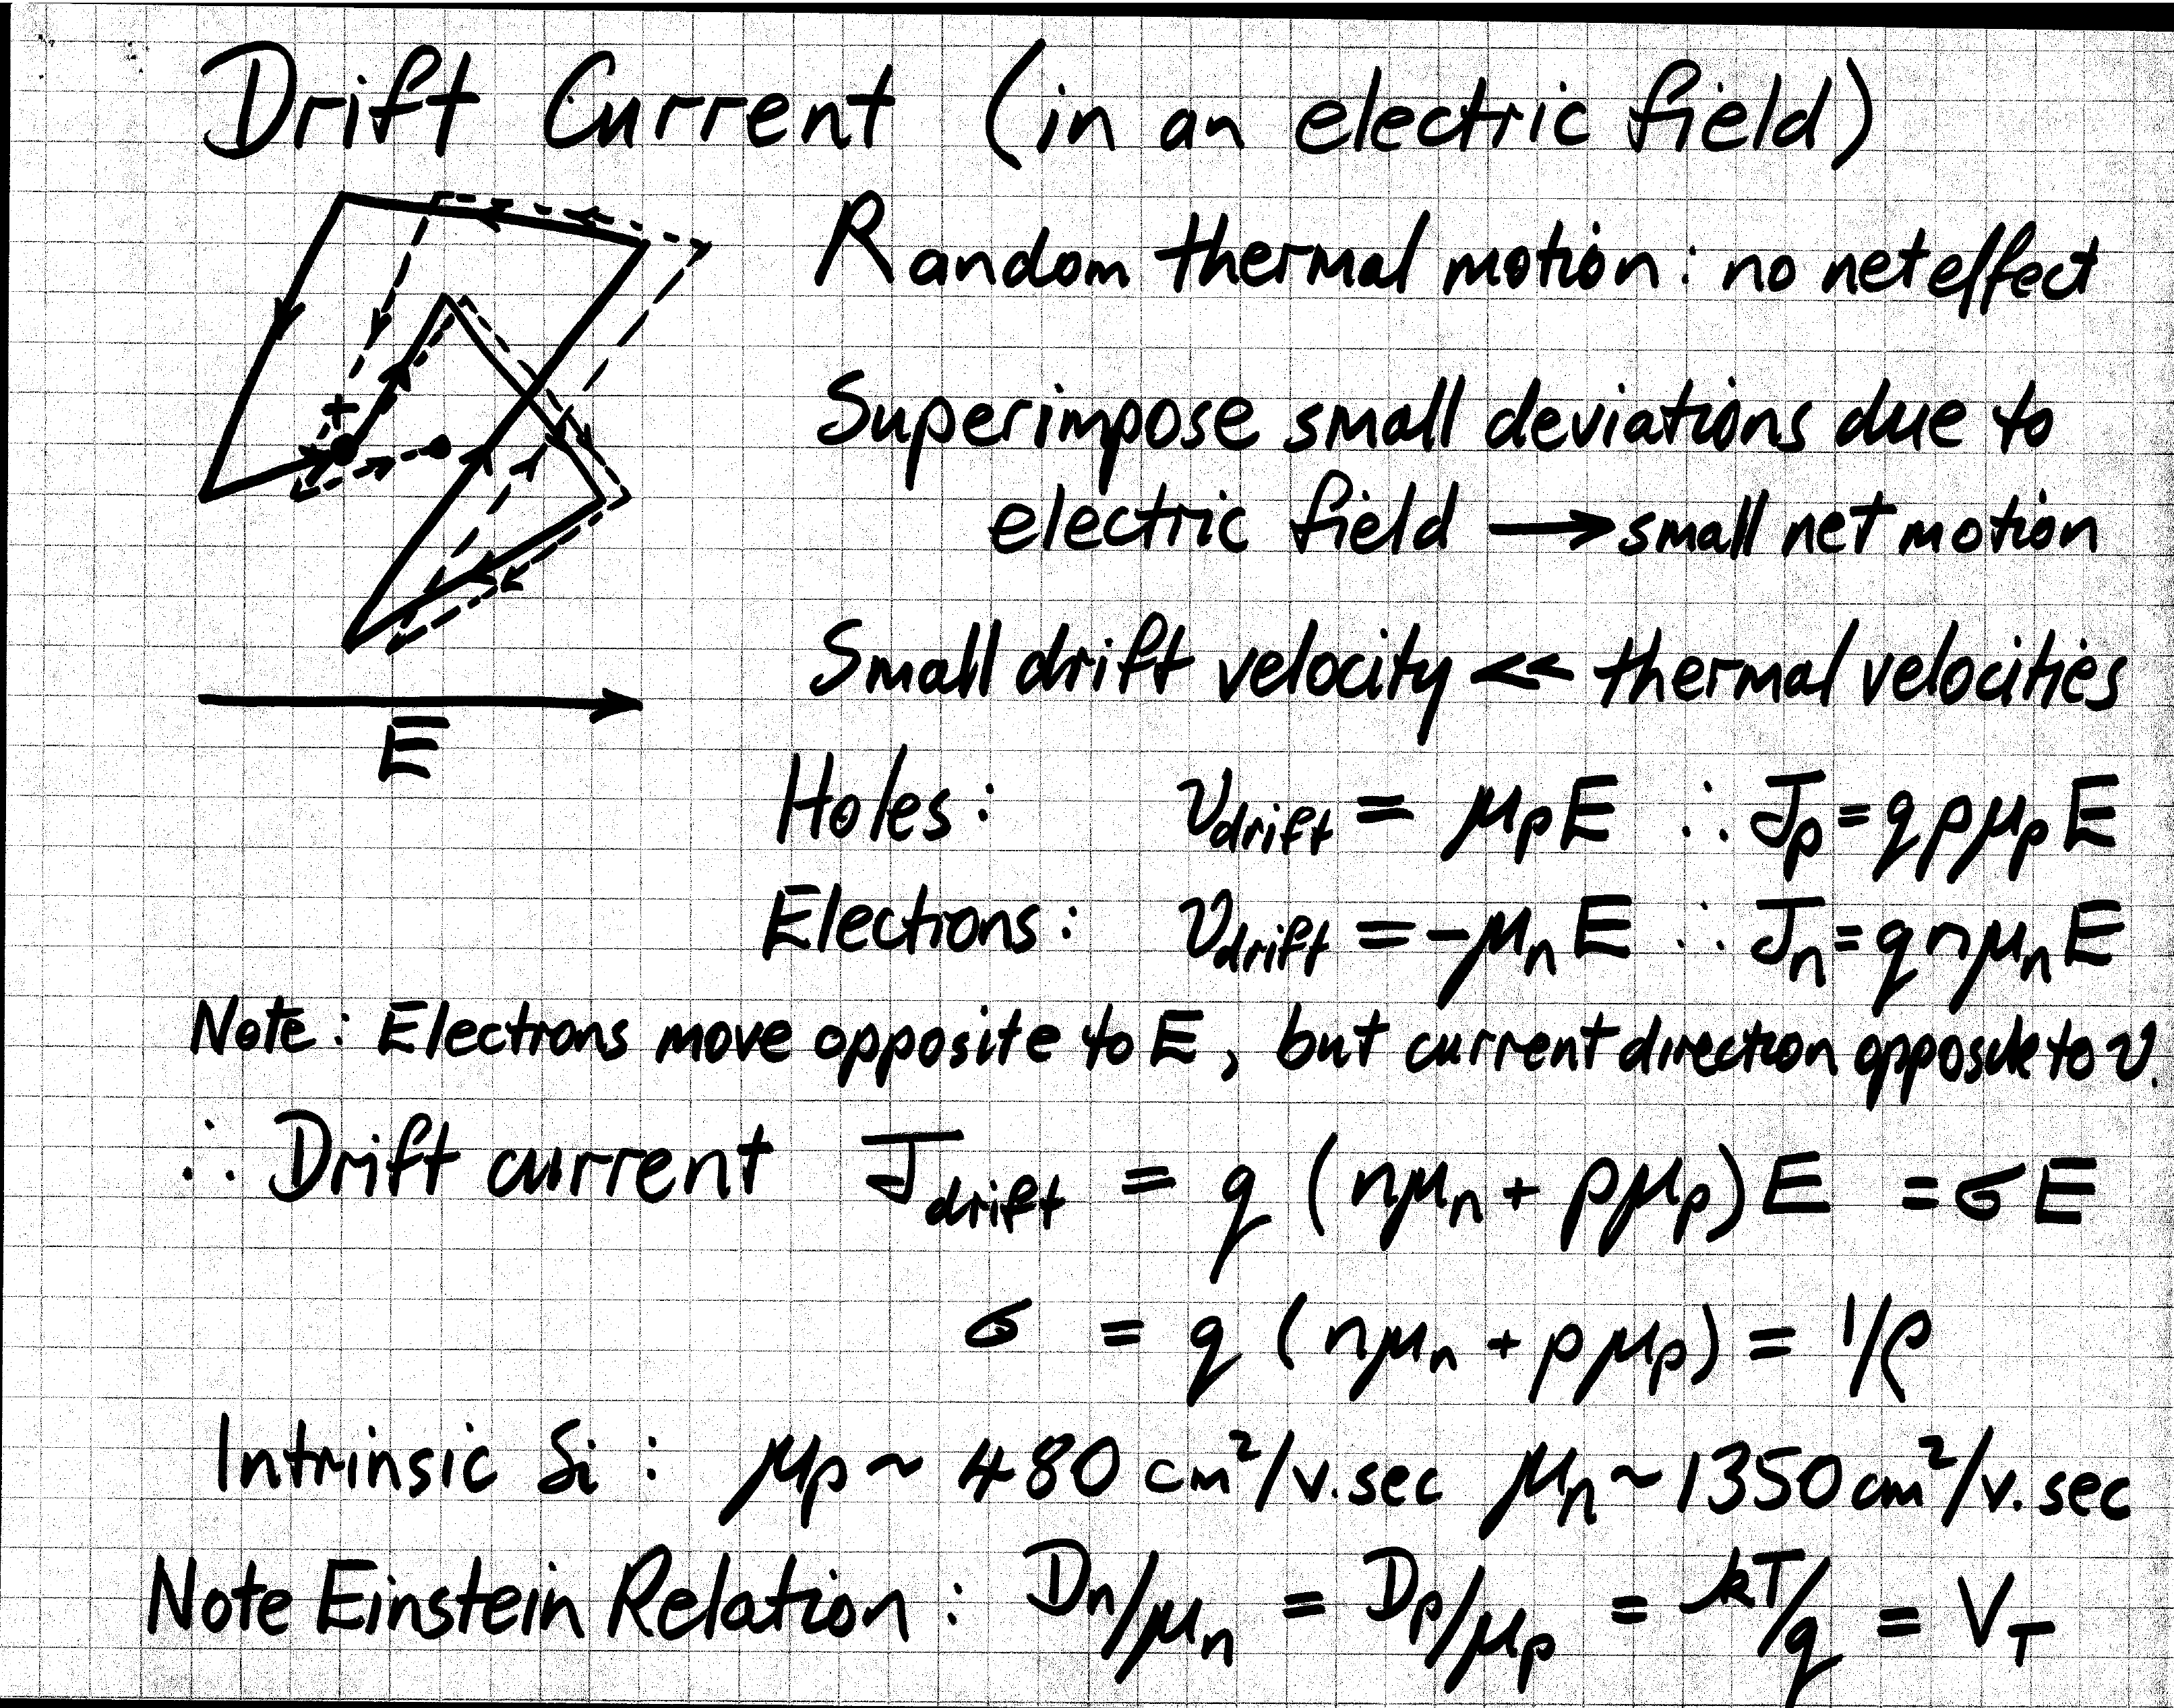 Drift Current (in an electric field)
Random thermal motion: no net effect
+
Superimpose small deviations due to
electric field → small net motion
Small drift velocity << thermal velocities
E
Holes: v_drift = μ_p E ∴ J_p = q p μ_p E
Electrons: v_drift = -μ_n E ∴ J_n = q n μ_n E
Note: Electrons move opposite to E, but current direction opposite to v.
∴ Drift current J_drift = q (nμ_n + pμ_p) E = σ E
σ = q (nμ_n + pμ_p) = 1/ρ
Intrinsic Si: μ_p ~ 480 cm²/v.sec μ_n ~ 1350 cm²/v.sec
Note Einstein Relation: D_n/μ_n = D_p/μ_p = kT/q = V_T